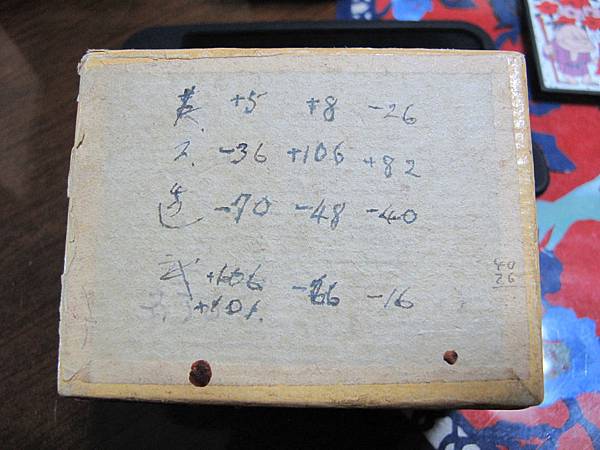 英 +5 +8 -26
-36 +106 +82
-70 -48 -40
武 +106 -66 -16
+101
40
26